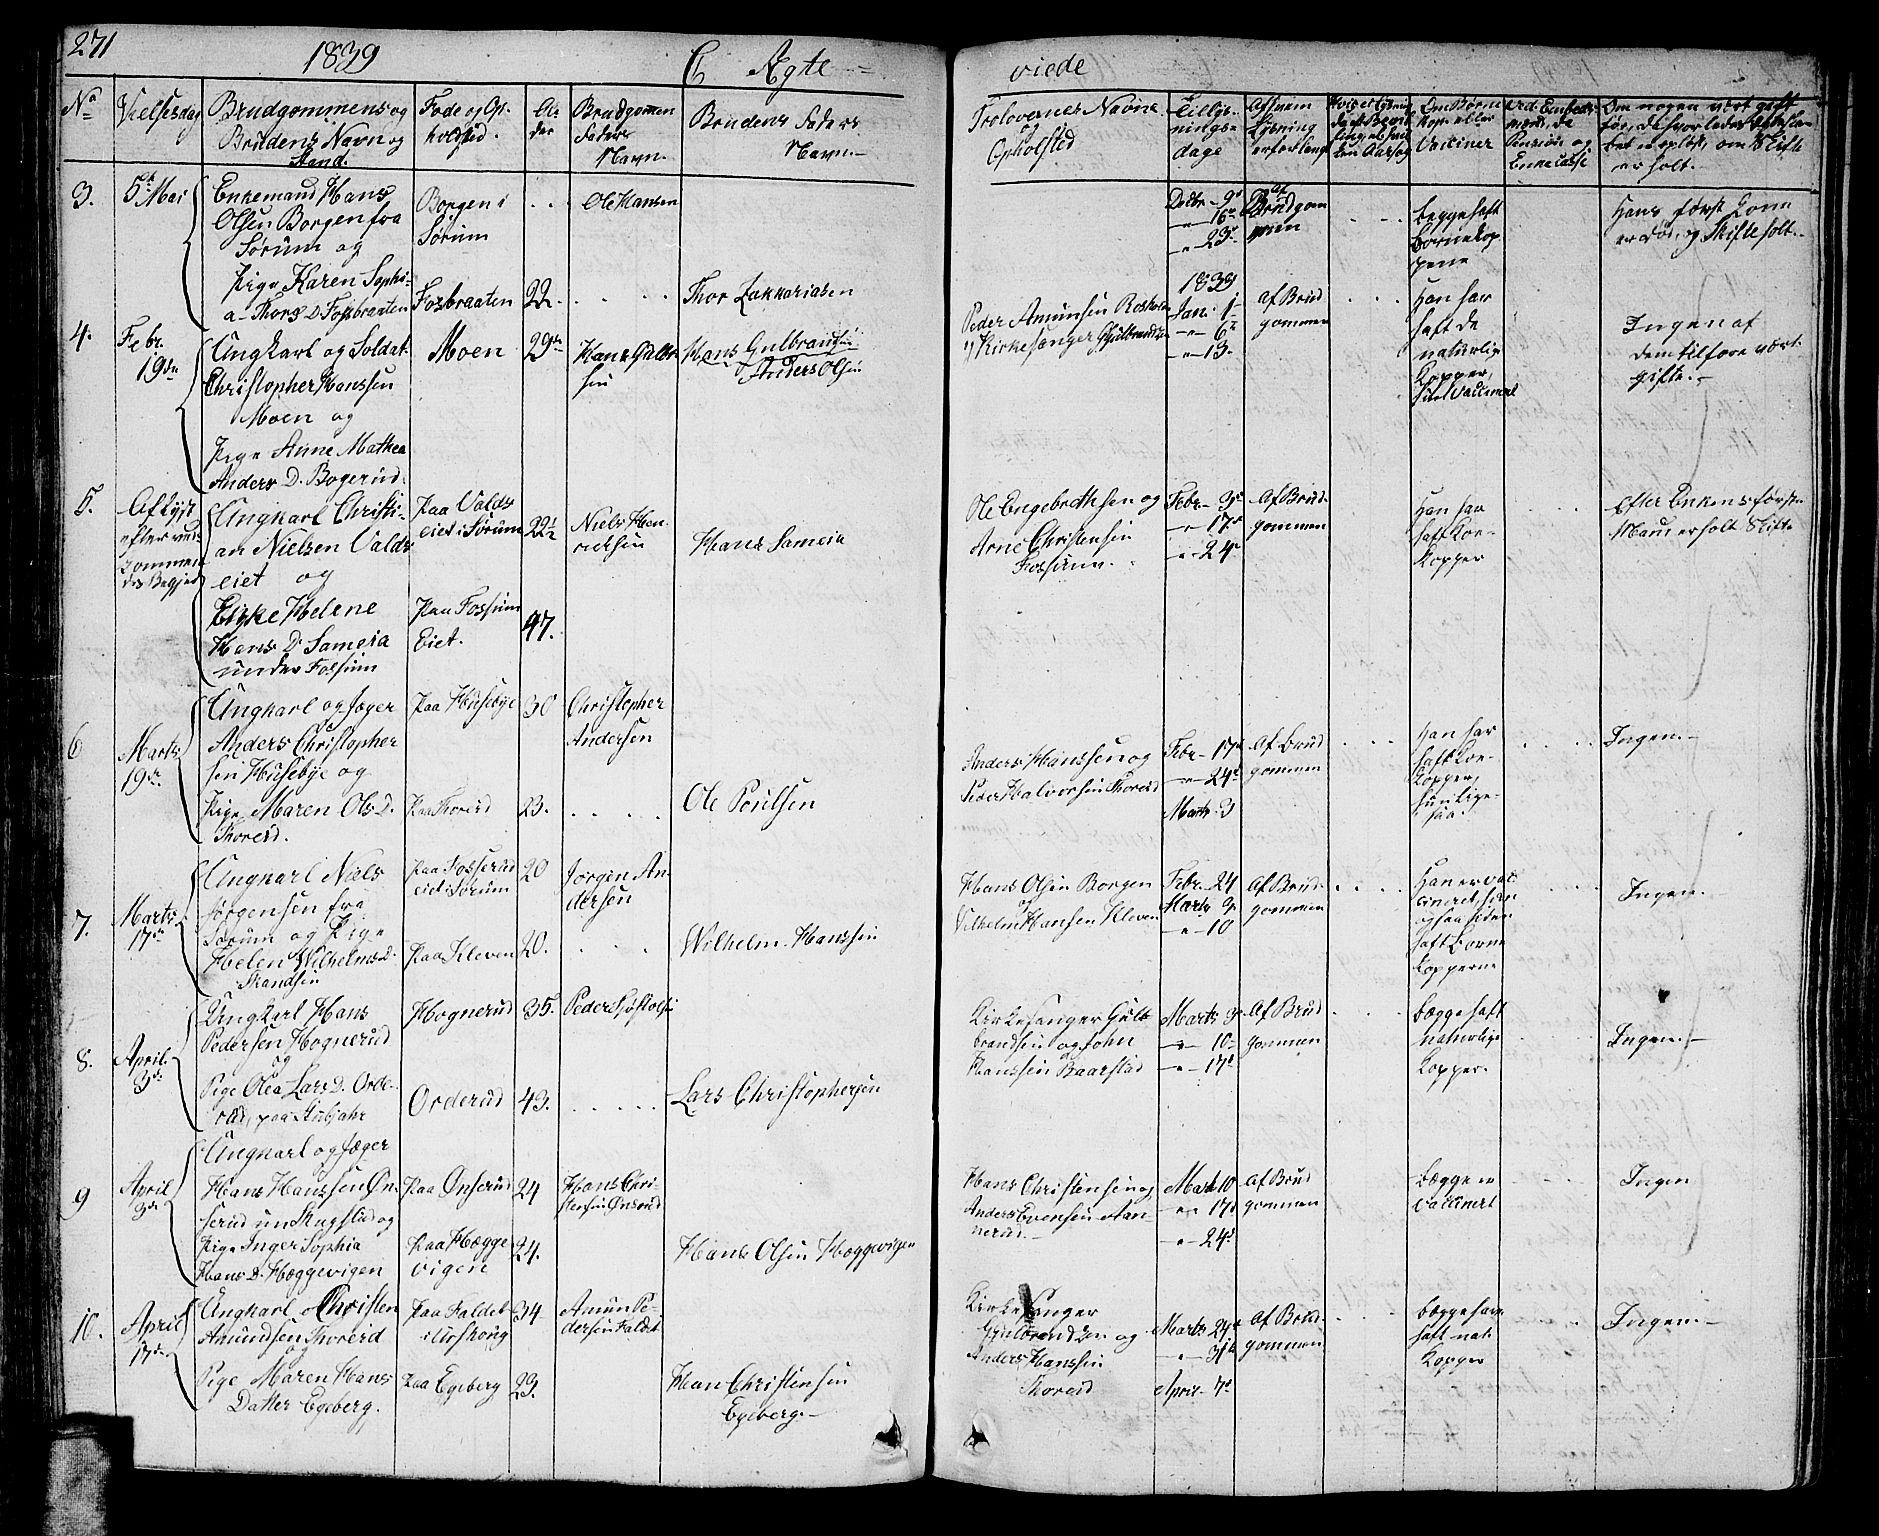 271
1839
C Ægte viede
No
Vielsesdag
Brudgommens og
Brudens Navn og
Stand.
Føde og Op-
holdsted.
Al-
der
Brudgommens
Faders
Navn.
Brudens Faders
Navn.
Trolovernes Navne
og
Opholsted
Tillys-
nings-
dage
Af hvem
Lysning
er forlangt
Om Børne
kop. eller
Vacciner
3.
5te Mai
Enkemand Hans
Olsen Borgen fra
Sørum og
Pige Karen Sophi-
a Thors D. Fosbraaten
Borgen i
Sørum
Fosbraaten
22.
Ole Hansen
Thor Zakkariasen
Decbr 9de
16de
23de
Af
Brudgom
men
begge haft
Børnekop
pene
Hans første Kone
er død, og Skifte holt.
4.
Febr.
19de
Ungkarl og Soldat
Christopher Hanssen
Moen og
Pige Anne Mathea
Anders D. Bogerud.
Moen
29de
Hans Gulbr-
sen
Hans Gulbransen
Anders Olsen
Peder Amunsen Rosholm
Kirkesanger Gulbrandsen
1839
Jan. 1
6te
13.
Af Brud
gommen
Han har
haft de
naturlige
Kopper,
hun Vaccineret
Ingen af
dem tilforn vært
gifte.
5.
Aflyst
efter ved-
kommen-
des Begjer
Ungkarl Christi-
an Nielsen Valds-
eiet og
Enke Helene
Hans D. Sameia
under Fossum
Paa Valds
eiet i Sørum
Paa Fossum
Eiet.
22½
47.
Niels Hen-
ricksen
Hans Sameia
Ole Engebrethsen og
Arne Christensen
Fossum.
Febr. 3de
17de
24de
Af Brud-
gommen
Han har
haft Koe-
kopper
Efter Enkens første
Mand er holt Skifte
6
Marts
19de
Ungkarl og Jæger
Anders Christopher
sen Husebye og
Pige Maren Ols D.
Thoreid.
Paa Husebye
Paa Thoreid
30
23.
Christopher
Andersen
Ole Poulsen
Anders Hanssen og
Peder Halvorsen Thoreid
Febr. 17de
24de
Marts 3
Af Brud
gommen
Han har
haft Koe-
kopper,
hun lige-
saa
Ingen.
7.
Marts
17de
Ungkarl Niels
Jørgensen fra
Sørum og Pige
Helen Wilhelms D.
Paa Fosserud
eiet i Sørum
Paa Kleven
20
20.
Jørgen An-
dersen
Wilhelm Hanssen
Hans Olsen Borgen
og
Vilhelm Hansen Kleven
Febr. 24
Marts 9
10
Af Brud-
gommen
Han er vac
cineret, hun
ogsaa siden
haft Børne
kopperne
Ingen.
8.
April
3de
Ungkarl Hans
Pedersen Hognerud
og
Pige Olea Lars D. Orde-
rud, paa Stubjahr
Hognerud
Orderud
35.
43.
Peder Sjøstolsen
Lars Christophersen
Kirkesanger Gulb
brandsen og John
Hanssen Baarstad
Marts 3
10
17de
Af Brud
gommen
begge haft
naturlige
Kopper.
Ingen.
9
April
3de
Ungkarl og Jæger
Hans Hanssen Øn-
serud un. Skugstud og
Pige Inger Sophia
Hans D. Hæggevigen
Paa Ønserud
Paa Hægge
vigen
24
24.
Hans Chri-
stensen Ønsrud
Hans Olsen Hæggevigen
Hans Christensen og
Anders Evensen Aan-
nerud.
Marts 10
17de
24de
Af Brud
gommen
begge er
vaccinert
Ingen
10.
April
17de
Ungkarl Christen
Amundsen Thoreid
og
Pige Maren Hans
Datter Egeberg.
Paa Faldet
i Urskoug
Paa Egeberg
34
23.
Amun Pe-
dersen Faldet
Han Christensen
Egeberg.
Kirkesanger
Gulbrandsen og
Anders Hanssen
Thoreid
Marts 24de
31te
April 7de
Af Brud-
gommen
begge have
haft nat.
Kopper
Ingen.